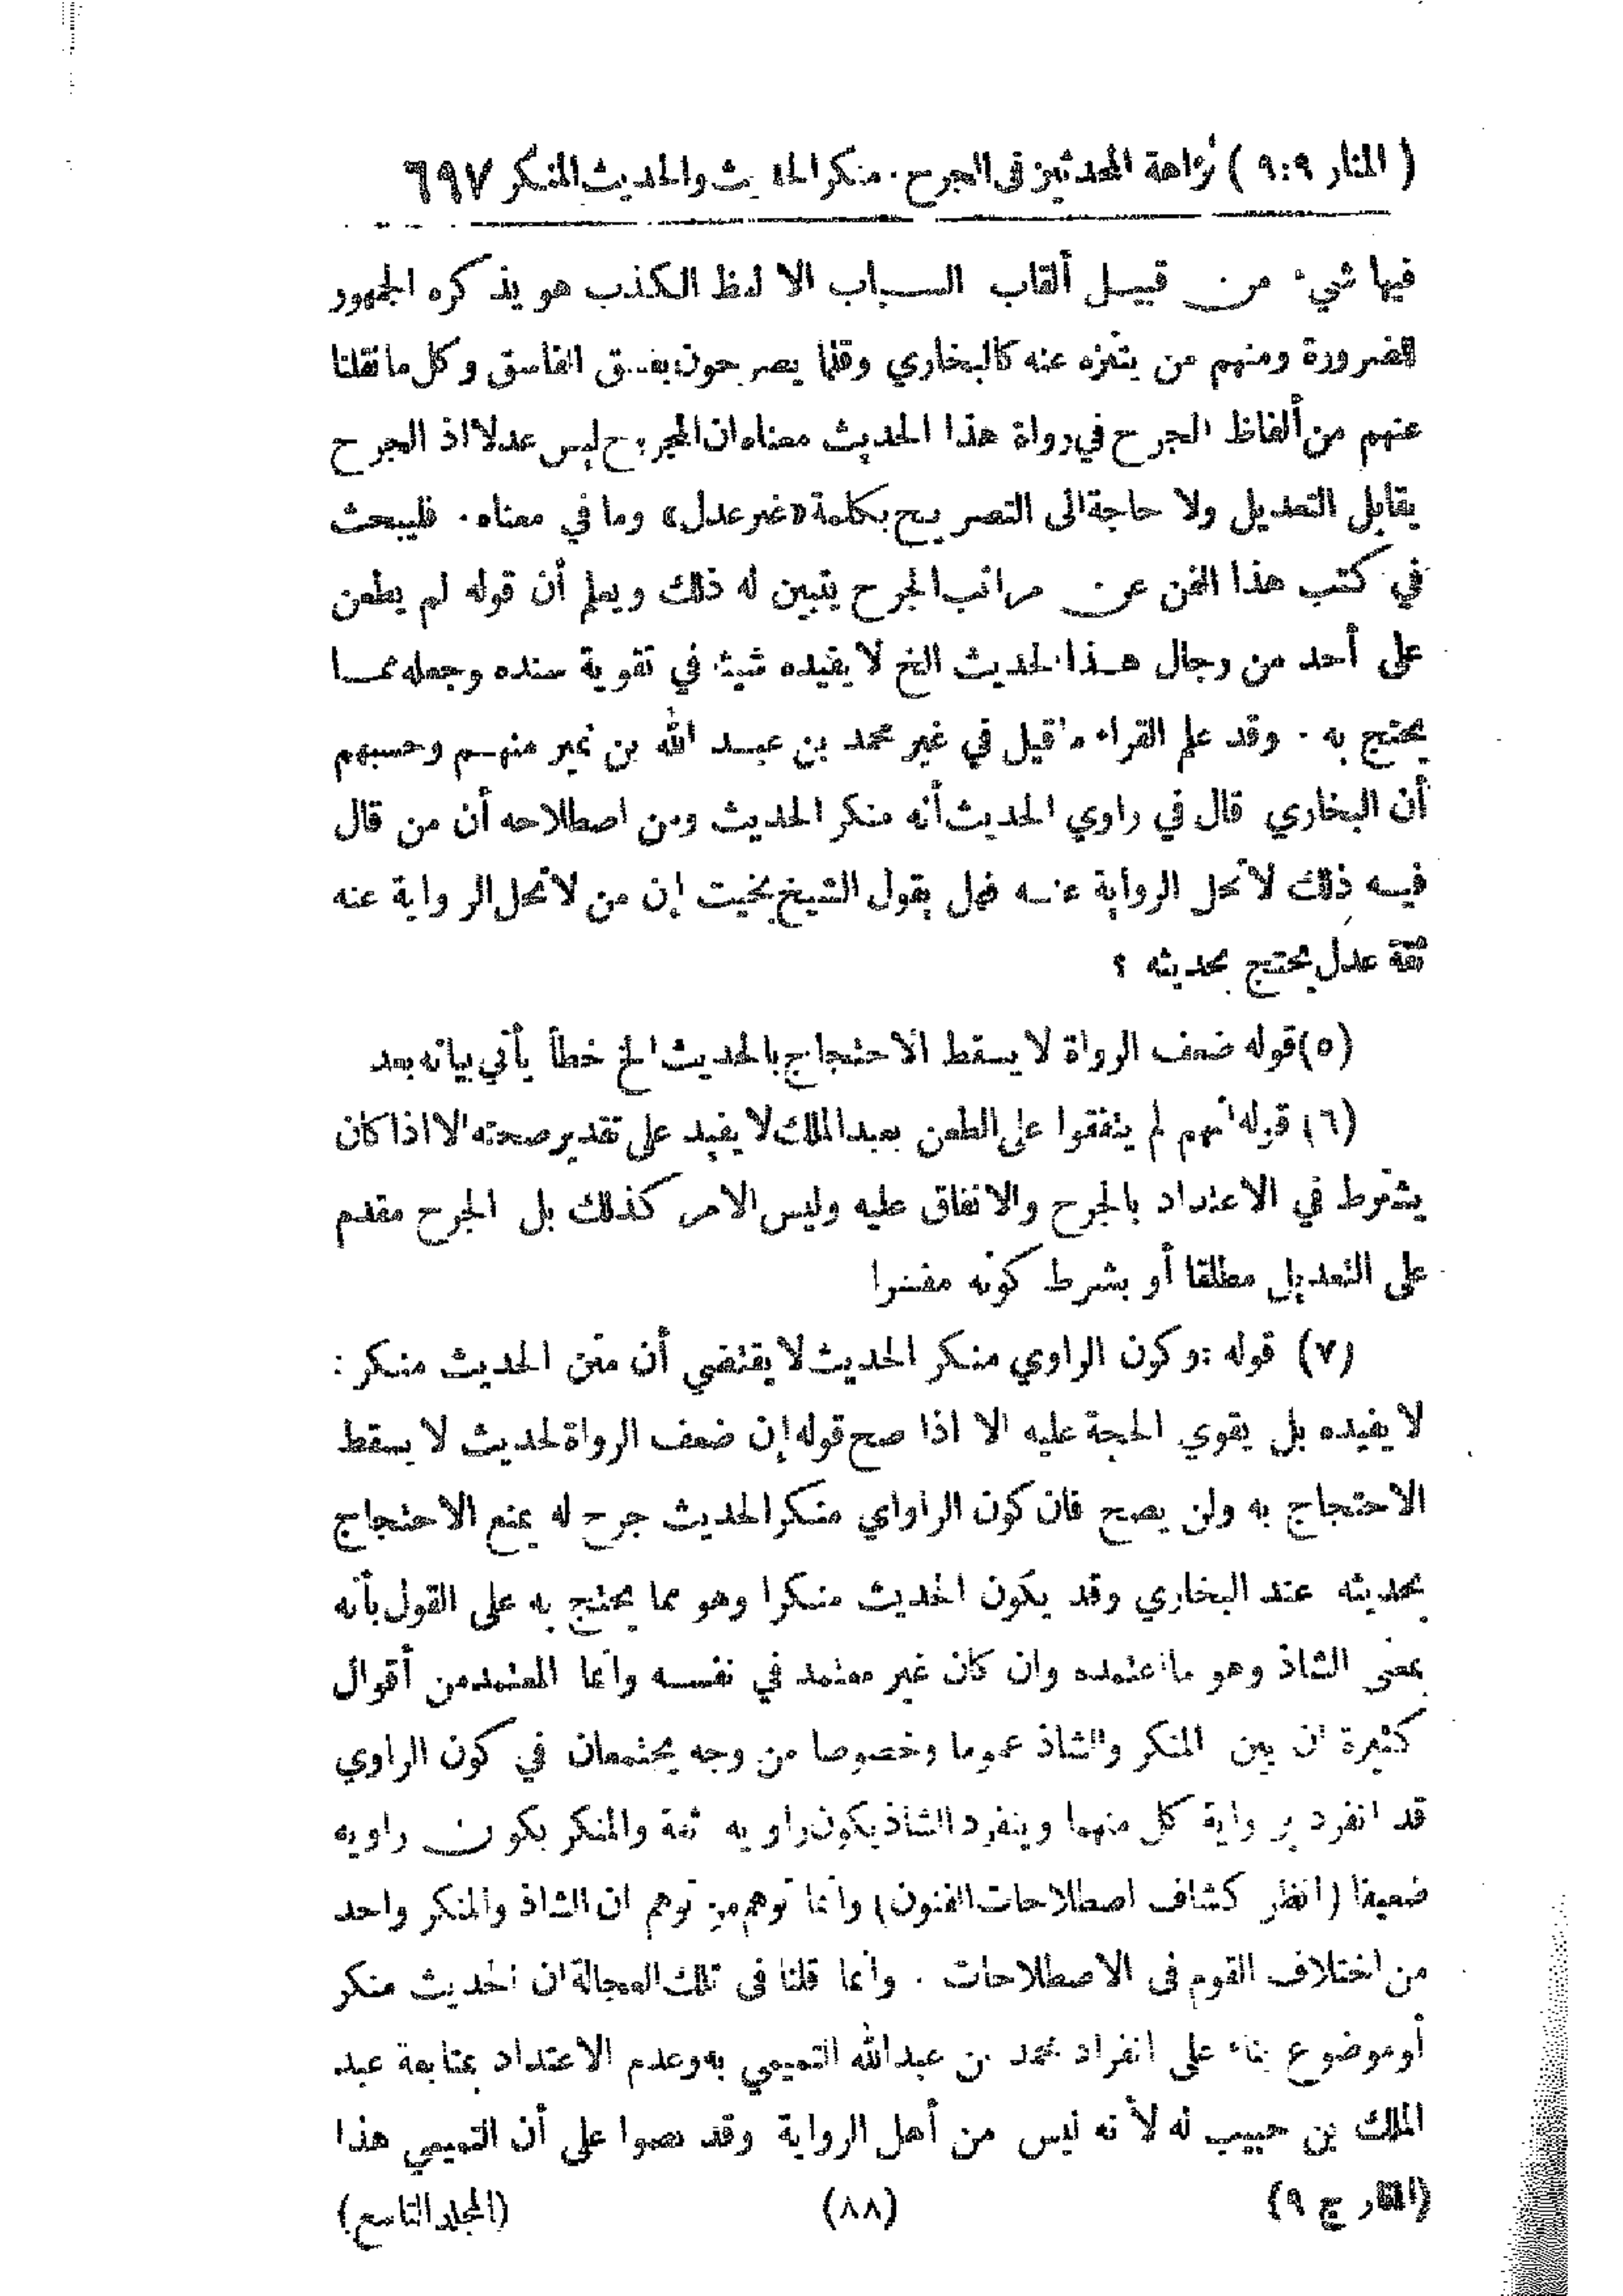 ( المنار ٩:٩ ) نزاهة المحدثين في الجرح . منكر الحديث والحديث المنكر ٦٩٧
فيها شيء من قبيل ألقاب السباب الا لفظ الكذب هو يذكره الجمهور
للضرورة ومنهم من يتنزه عنه كالبخاري وقلما يصرحون بفسق الفاسق وكل ما نقلنا
عنهم من ألفاظ الجرح في رواة هذا الحديث معناه ان المجروح ليس عدلا اذ الجرح
يقابل التعديل ولا حاجة الى التصريح بكلمة «غير عدل» وما في معناه . فليبحث
في كتب هذا الفن عن مراتب الجرح يتبين له ذلك ويعلم أن قوله لم يطعن
على أحد من رجال هذا الحديث الخ لا يفيده شيئا في تقوية سنده وجعله مما
يحتج به . وقد علم القراء ما قيل في غير محمد بن عبد الله بن نمير منهم وحسبهم
أن البخاري قال في راوي الحديث أنه منكر الحديث ومن اصطلاحه أن من قال
فيه ذلك لا تحل الرواية عنه فهل يقول الشيخ بخيت إن من لا تحل الرواية عنه
ثقة عدل يحتج بحديثه ؟
(٥) قوله ضعف الرواة لا يسقط الاحتجاج بالحديث الخ خطأ يأتي بيانه بعد
(٦) قوله انهم لم يتفقوا على الطعن بعبد الملك لا يفيد على تقدير صحته الا اذا كان
يشترط في الاعتداد بالجرح والاتفاق عليه وليس الامر كذلك بل الجرح مقدم
على التعديل مطلقا أو بشرط كونه مفسرا
(٧) قوله : وكون الراوي منكر الحديث لا يقتضي أن متن الحديث منكر :
لا يفيده بل يقوي الحجة عليه الا اذا صح قوله إن ضعف الرواة لحديث لا يسقط
الاحتجاج به ولن يصح فان كون الراواي منكر الحديث جرح له يمنع الاحتجاج
بحديثه عند البخاري وقد يكون الحديث منكرا وهو مما يحتج به على القول بأنه
بمعنى الشاذ وهو ما اعتمده وان كان غير معتمد في نفسه وانما المعتمد من أقوال
كثيرة ان بين المنكر والشاذ عموما وخصوصا من وجه يجتمعان في كون الراوي
قد انفرد برواية كل منهما وينفرد الشاذ بكون راويه ثقة والمنكر بكون راويه
ضعيفا (انظر كشاف اصطلاحات الفنون) وانما توهم من توهم ان الشاذ والمنكر واحد
من اختلاف القوم في الاصطلاحات . وانما قلنا في تلك العجالة ان الحديث منكر
أو موضوع بناء على انفراد محمد بن عبد الله التميمي به وعدم الاعتداد بمتابعة عبد
الملك بن حبيب له لأنه ليس من أهل الرواية وقد نصوا على أن التميمي هذا
(المنار ج ٩) (٨٨) (المجلد التاسع)